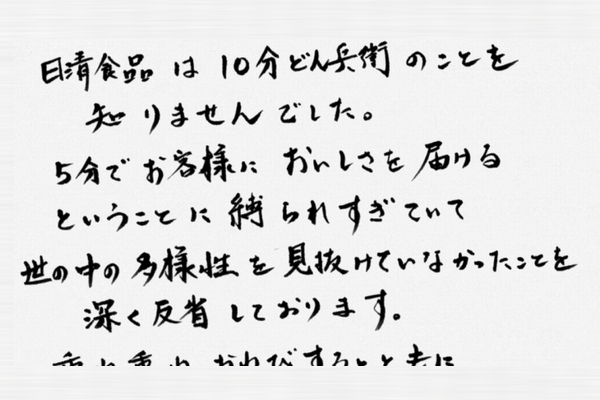 日清食品は10分どん兵衛のことを
知りませんでした。
5分でお客様においしさを届ける
ということに縛られすぎていて
世の中の多様性を見抜けていなかったことを
深く反省しております。
重ね重ねおわびすると共に